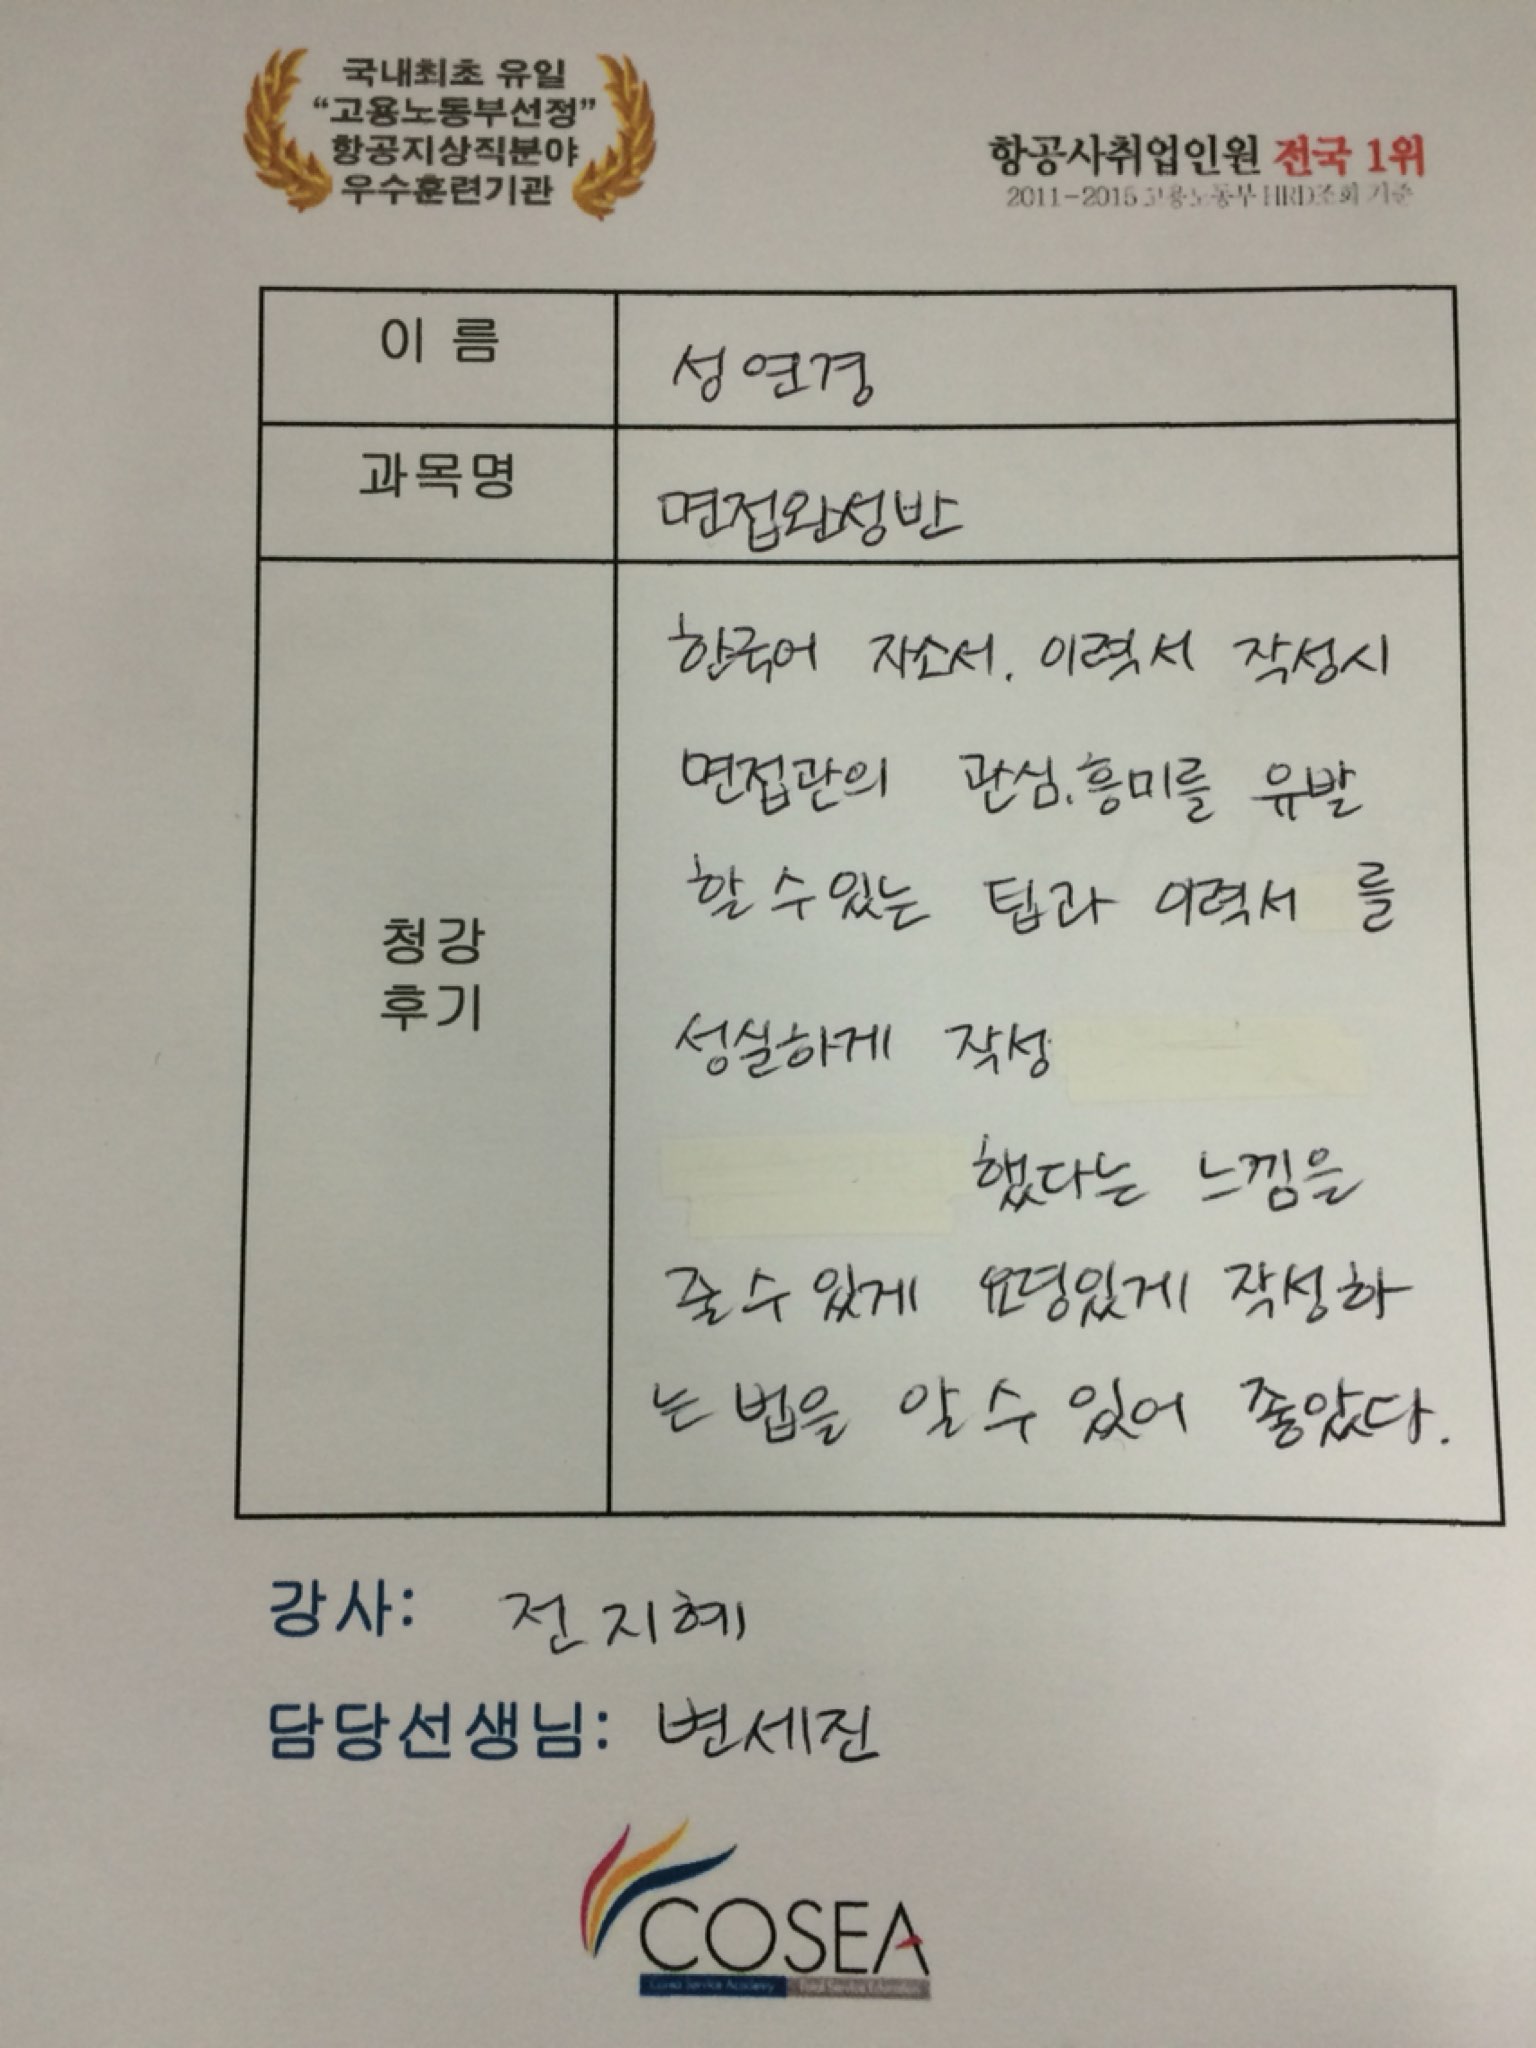 국내최초 유일
“고용노동부선정”
항공지상직분야
우수훈련기관
항공사취업인원 전국 1위
2011-2015 고용노동부 HRD조회 기준
이 름
성연경
과목명
면접완성반
청강
후기
한국어 자소서, 이력서 작성시
면접관의 관심,흥미를 유발
할 수 있는 팁과 이력서 를
성실하게 작성
했다는 느낌을
줄 수 있게 요령있게 작성하
는 법을 알 수 있어 좋았다.
강사: 전지혜
담당선생님: 변세진
COSEA
Cosea Service Academy Total Service Education